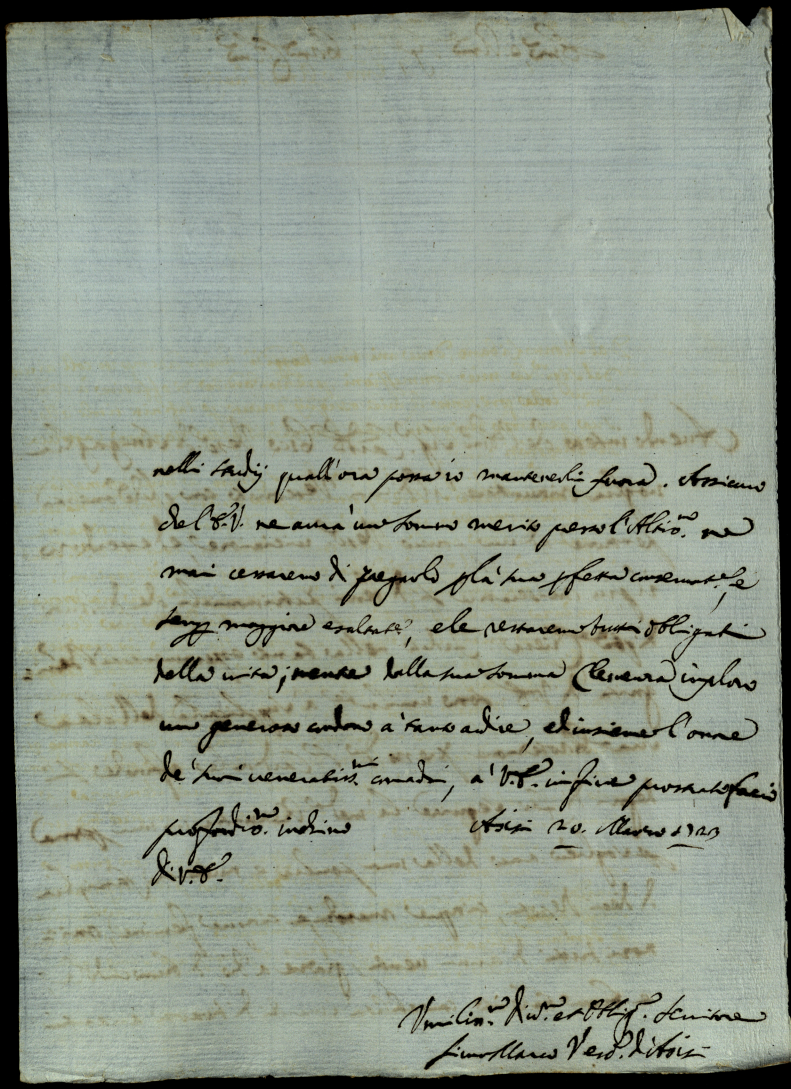 nelli studij quall'ora possa io mantenerli fuora. Assicuro
del' V. ne avrà un sommo merito presso l'Altis.mo, ne
mai cessaremo di pregarlo p la sua
maggiore esaltat.e, e le restaremo tutti obligati
della vita; mentre dalla sua somma Clemenza imploro
un generoso condono a' tanto ardire, ed insieme l'onore
de' suoi veneratis.mi comandi, a' V.S. in fine prostrato faccio
profondis.mo inchino Asisi 20. Marzo 1723
di V.S.
Umilis.mo Div.mo et Obblig.mo Servitore
Vesc.o d'Asisi